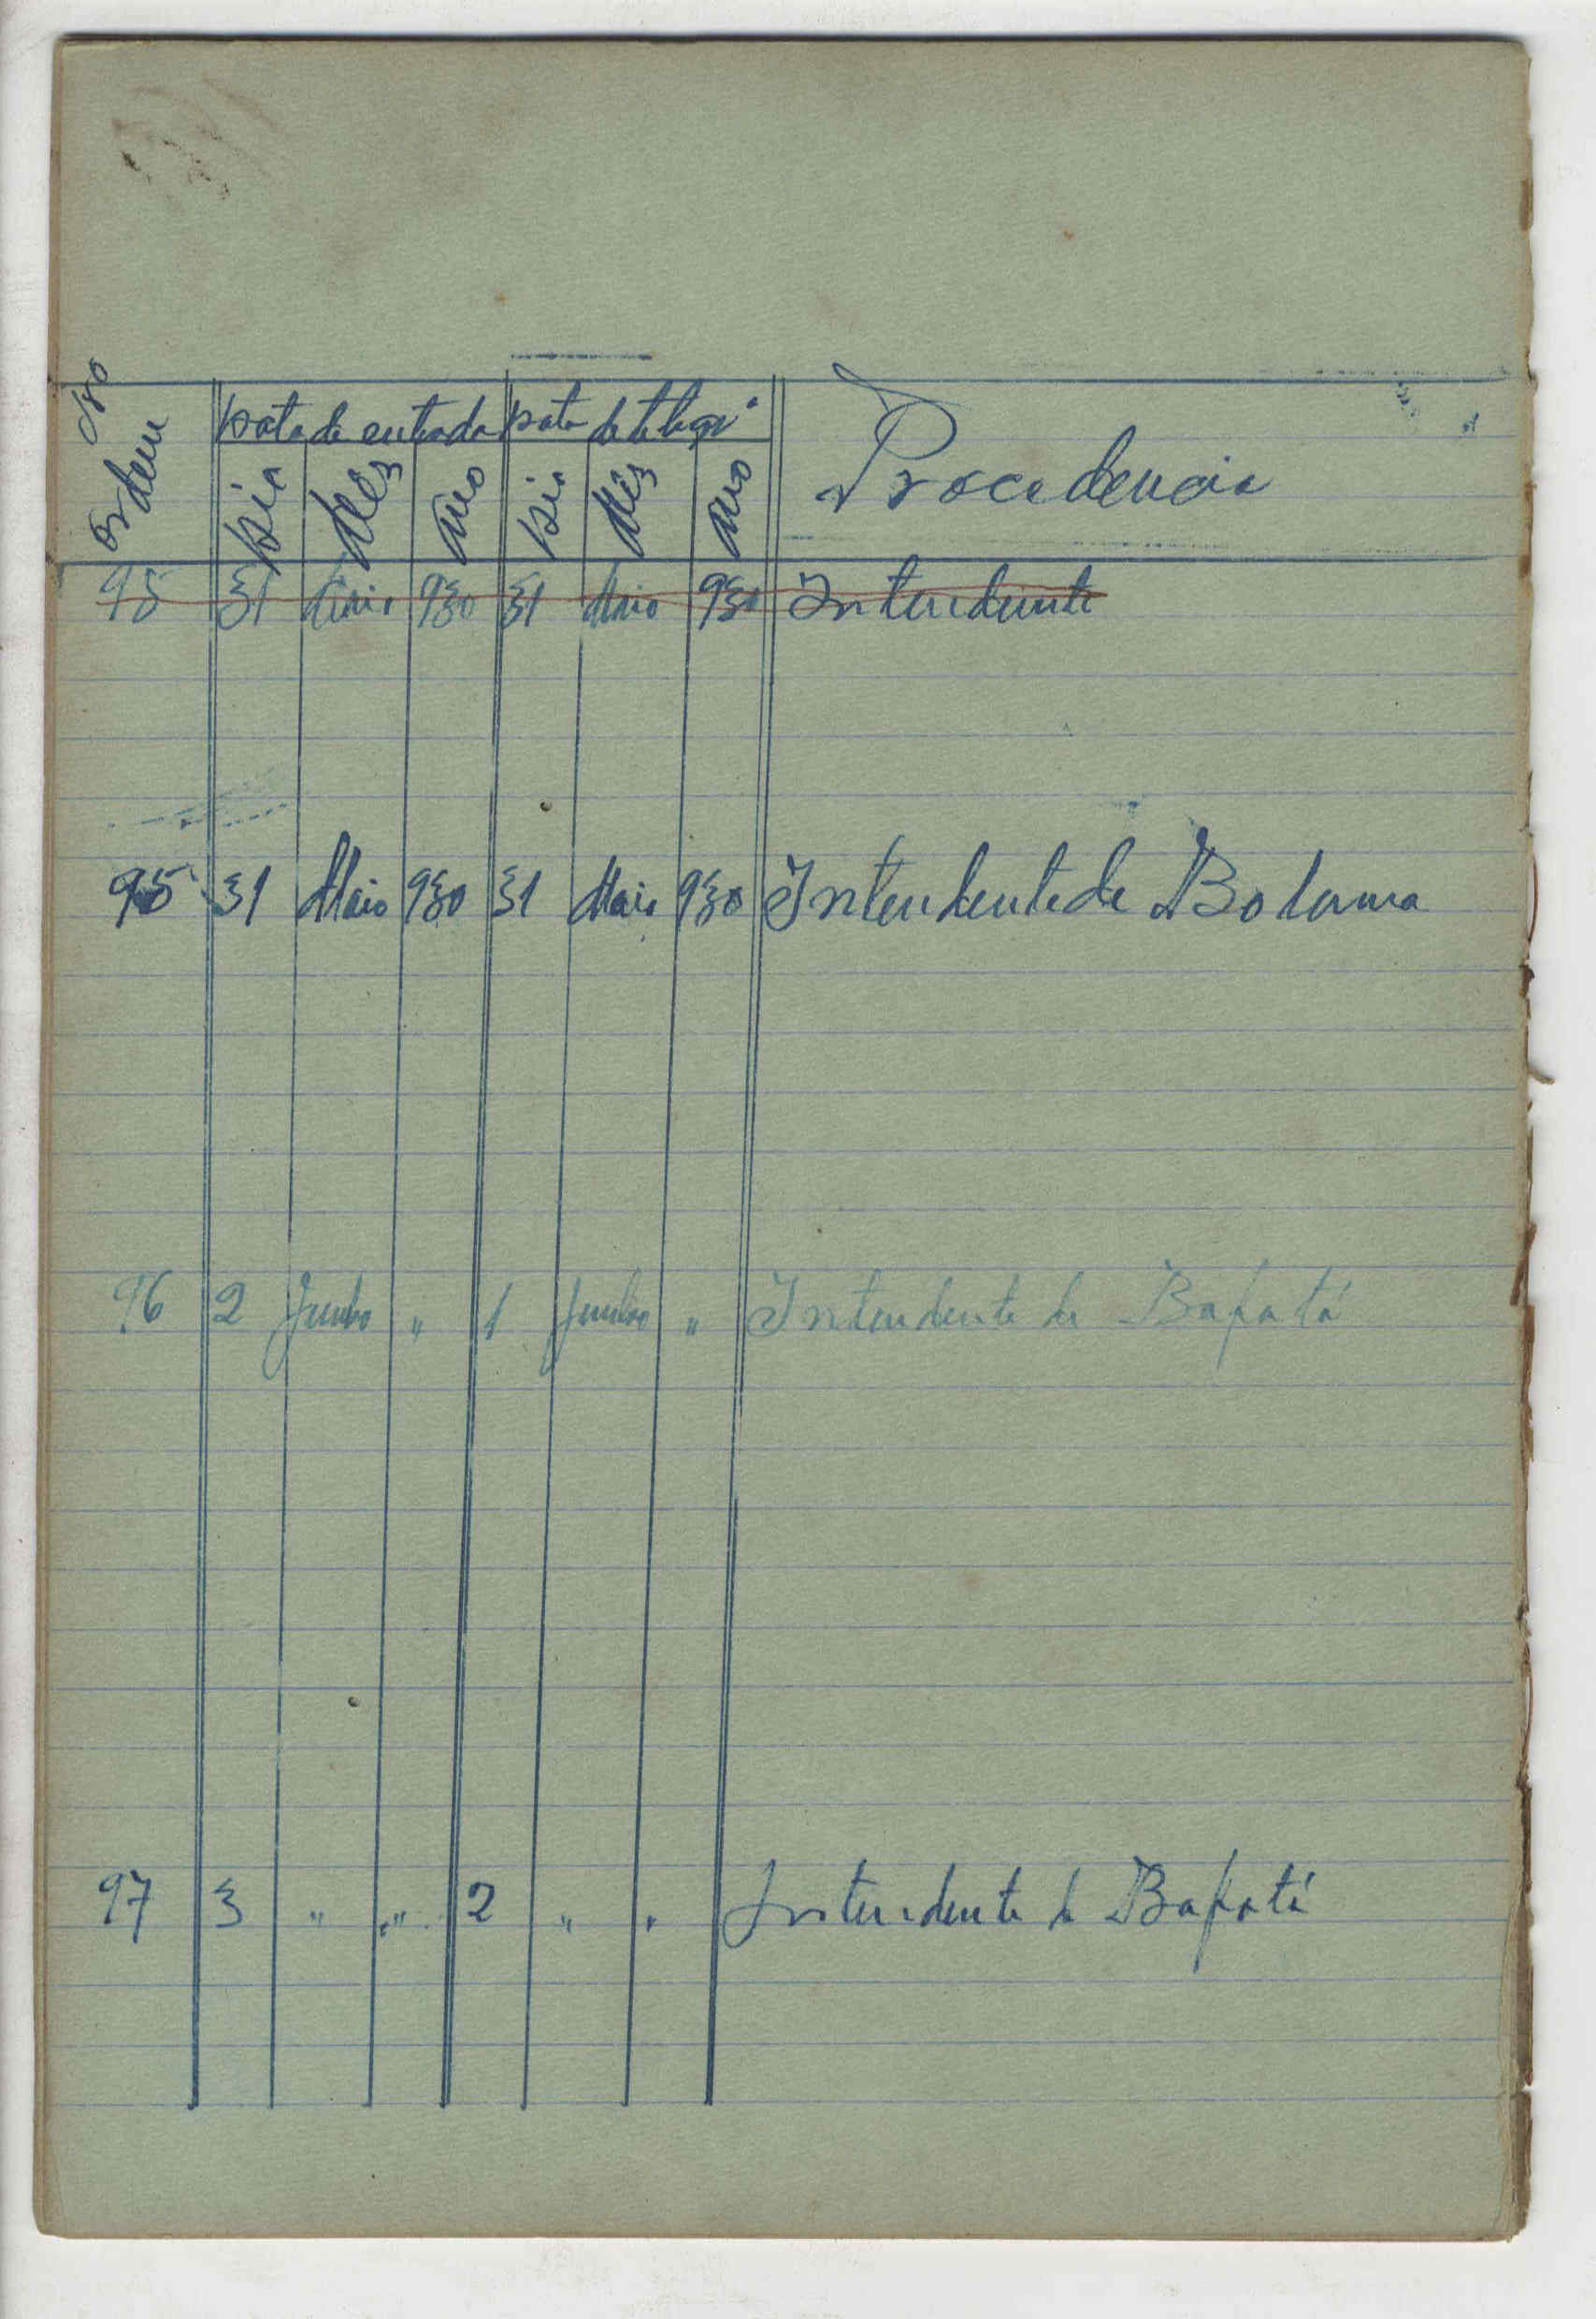 Nro Ordem
Data de entrada Data de telegr.ª Procedencia
Dia Mês Ano Dia Mês Ano
95 31 Maio 930 31 Maio 930 Intendente
95 31 Maio 930 31 Maio 930 Intendente de Bolama
96 2 Junho " 1 Junho " Intendente de Bafatá
97 3 " " 2 " " Intendente de Bafatá